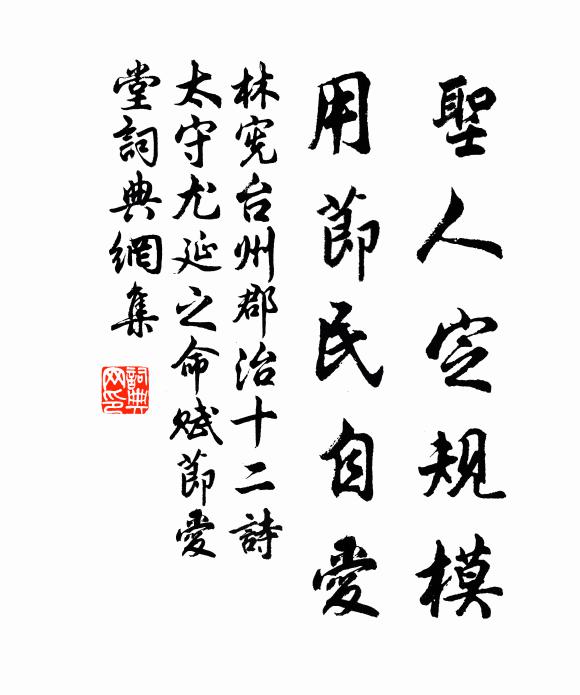 聖人定規模
用節民自愛
林宪台州郡治十二詩
太守尤延之命賦節愛
堂詞典網集
詞典網印